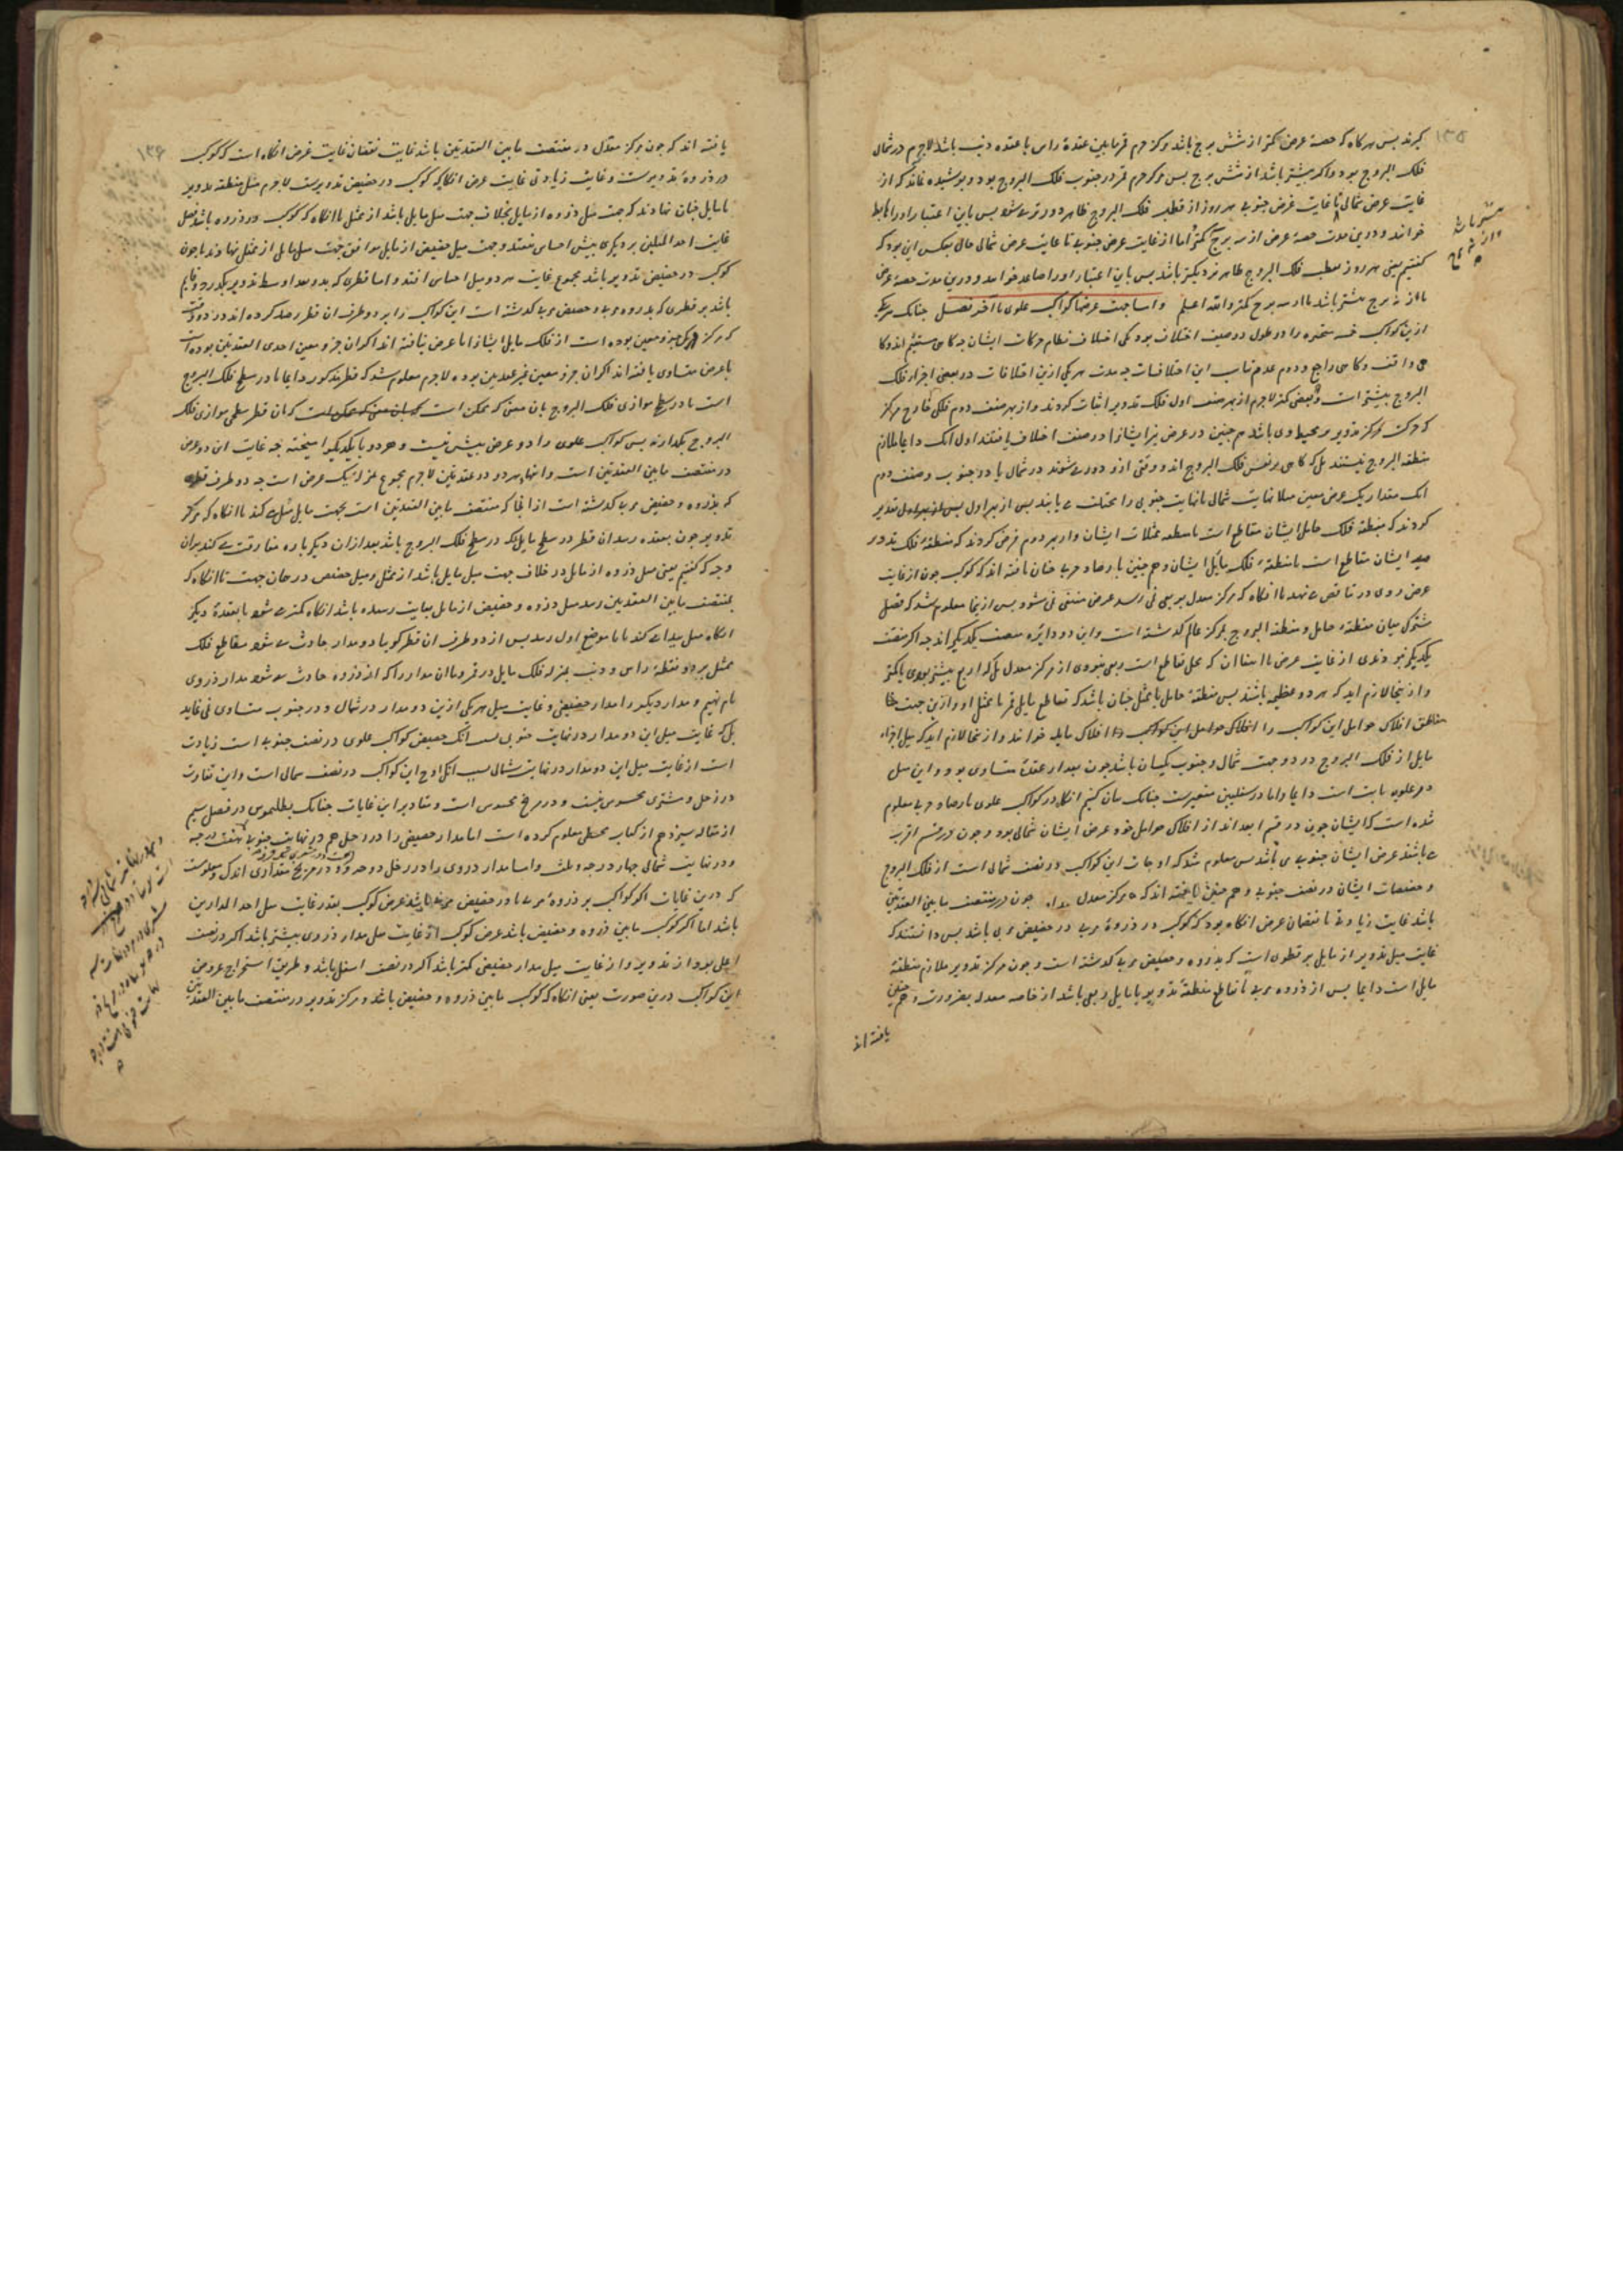 ۱۳۵
کیرند بس هرکاه که حصهٔ عرض کمتر از شش برج باشد مرکز جرم قمر مابین عقدهٔ راس با عقده ذنب باشد لاجرم در شمال
فلک البروج بود و اکر بیشتر باشد از شش برج بس مرکز جرم قمر در جنوب فلک البروج بود و بوشیده نماند که از
غایت عرض شمالی تا غایت عرض جنوبی هر روز از قطب فلک البروج ظاهر دورتر می شود بس باین اعتبار او را هابط
خوانند و درین مدت حصهٔ عرض از سه برج کمتر اما از غایت عرض جنوبی تا غایت عرض شمالی حال بعکس این بود که
کفتیم یعنی هر روز بقطب فلک البروج ظاهر نزدیکتر باشد بس باین اعتبار او را صاعد خوانند و درین مدت حصهٔ عرض
یا از نه برج بیشتر باشد یا از سه برج کمتر والله اعلم واما جهت عرضها کواکب علوی تا آخر فصل جنانک هر یکی
ازین کواکب خمسه متحیره را در طول دو صنف اختلاف بود یکی اختلاف نظام حرکات ایشان جه کاهی مستقیم اند و کا
هی واقف و کاهی راجع و دوم عدم تناسب این اختلافات جه مدت هر یکی ازین اختلافات در بعضی اجزاء فلک
البروج بیشتر است و بعضی کمتر لاجرم از بهر صنف اول فلک تدویر اثبات کردند و از بهر صنف دوم فلکی خارج مرکز
که حرکت مرکز تدویر بر محیط وی باشد هم جنین در عرض نیز ایشانرا دو صنف اختلاف یافتند اول انک دایما ملازم
منطقه البروج نیستند بل که کاهی بر نفس فلک البروج اند و وقتی ازو دور می شوند در شمال یا در جنوب و صنف دوم
انک مقدار یک عرض معین مثلا نهایت شمالی یا نهایت جنوبی را مختلف می یابند بس از بهر اول
کردند که منطقهٔ فلک حامل ایشان مقاطع است با منطقه ممثلات ایشان و از بهر دوم فرض کردند که منطقهٔ فلک تدویر
ایشان مقاطع است با منطقهٔ فلک مایل ایشان و هم جنین بارصاد جنان یافته اند که کوکب جون از غایت
عرض روی در تناقص می نهد تا انکاه که مرکز معدل بربعی نمی رسد عرض منتفی نمی شود بس ازینجا معلوم شد که فصل
مشترک میان منطقهٔ حامل و منطقهٔ البروج بمرکز عالم کذشته است و این دو دایره منصف یکدیکر اند جه اکر منصف
یکدیکر نبودندی از غایت عرض تا انجا که محل تقاطع است ربعی نبودی از مرکز معدل بل که از ربع بیشتر بودی یا کمتر
و ازینجا لازم اید که هر دو عظیمه باشند بس منطقهٔ حامل با ممثل جنان باشد که تقاطع مایل قمر با ممثل او و ازین جهت
مناطق افلاک حوامل این کواکب را افلاک مایله خوانند و ازینجا لازم اید که میل اجزاء
مایل از فلک البروج در دو جهت شمال و جنوب یکسان باشد جون بعد از عقده متساوی بود و این میل
در علویه ثابت است دایما و اما در سفلیین متغیرست جنانک بیان کنیم انکاه در کواکب علوی بارصاد معلوم
شده است که ایشان جون در قسم ابعد اند از افلاک حوامل خود عرض ایشان شمالی بود و جون در قسم اقرب
می باشند عرض ایشان جنوبی می باشد بس معلوم شد که اوجات این کواکب در نصف شمالی است از فلک البروج
و حضیضات ایشان در نصف جنوبی و هم جنین یافته اند که مرکز معدل جون در منتصف مابین العقدتین
باشد غایت زیادتی یا نقصان عرض انکاه بود که کوکب در ذروهٔ مریی یا در حضیض مریی باشد بس دانستند که
غایت میل تدویر از مایل بر قطری است که بذروه و حضیض مریی کذشته است و جون مرکز تدویر ملازم منطقهٔ
مایل است دایما بس از ذروه مریی تا تقاطع منطقهٔ تدویر با مایل ربعی باشد از خاصه معدله بضرورت و هم جنین
یافته اند
۱۳۶
یافته اند که جون مرکز معدل در منتصف مابین العقدتین باشد غایت نقصان غایت عرض انکاه است که کوکب
در ذروهٔ تدویرست و غایت زیادتی غایت عرض انکاکه کوکب در حضیض تدویرست لاجرم میل منطقه تدویر
با مایل جنان نهادند که جهت میل ذروه از مایل بخلاف جهت میل مایل باشد از ممثل تا انکاه که کوکب در ذروه باشد فضل
غایت احد المیلین بر دیکری بیش احساس نیفتد و جهت میل حضیض از مایل موافق جهت میل مایل از ممثل نهادند تا جون
کوکب در حضیض تدویر باشد مجموع غایت هر دو میل احساس افتد و اما قطری که ببعد اوسط تدویر بکذرد و قایم
باشد بر قطری که بذروه مریی و حضیض مریی کذشته است این کواکب را بر دو طرف ان قطر رصد کرده اند در دو وقت
که مرکز بر یک جزو معین بوده است از فلک مایل ایشانرا یا عرض نیافته اند اکر ان جزو معین احدی العقدتین بوده است
یا عرض متساوی یافته اند اکر ان جزو معین غیر عقدتین بوده لاجرم معلوم شد که قطر مذکور دایما یا در سطح فلک البروج
است یا در سطح موازی فلک البروج بان معنی که ممکن است که بان قطر سطحی موازی فلک
البروج بکذرانند بس کواکب علوی را دو عرض بیش نیست و هر دو با یکدیکر امیخته جه غایت این دو عرض
در منتصف مابین العقدتین است و انتهاء هر دو در عقدتین لاجرم مجموع بمنزلهٔ یک عرض است جه دو طرف قطر
که بذروه و حضیض مریی کذشته است از انجا که منتصف مابین العقدتین است بجهت مایل میل می کند تا انکاه که مرکز
تدویر جون بعقده رسد ان قطر در سطح مایل بلکه در سطح فلک البروج باشد بعد ازان دیکر باره مفارقت می کند بران
وجه که کفتیم یعنی میل ذروه از مایل در خلاف جهت میل مایل باشد از ممثل و میل حضیض در همان جهت تا انکاه که
بمنتصف مابین العقدتین رسد میل ذروه و حضیض از مایل بغایت رسیده باشد انکاه کمتر می شود تا بعقدهٔ دیکر
انکاه میل بیدا می کند تا بموضع اول رسد بس از دو طرف ان قطر کویا دو مدار حادث می شود مقاطع فلک
ممثل بر دو نقطهٔ راس و ذنب بمنزله فلک مایل در قمر و ما ان مدار را که از ذروه حادث می شود مدار ذروی
نام نهیم و مدار دیکر را مدار حضیضی و غایت میل هر یکی ازین دو مدار در شمال و در جنوب متساوی نمی نماید
بل که غایت میل این دو مدار در نهایت جنوبی بسبب انک حضیض کواکب علوی در نصف جنوبی است زیادت
است از غایت میل این دو مدار در نهایت شمالی بسبب انک اوج این کواکب در نصف شمالی است و این تفاوت
در زحل و مشتری محسوس نیست و در مریخ محسوس است و مقادیر این غایات جنانک بطلمیوس در فصل سیم
از مقاله سیزدهم از کتاب مجسطی معلوم کرده است اما مدار حضیضی را در زحل هم در نهایت جنوبی
و در نهایت شمالی جهار درجه و ثلث و اما مدار ذروی را در زحل دو درجه و در مریخ مقداری اندک و معلومست
که درین غایات اکر کواکب بر ذروهٔ مریی یا در حضیض مریی باشد عرض کوکب بقدر غایت میل احد المدارین
باشد اما اکر کوکب مابین ذروه و حضیض باشد عرض کوکب از غایت میل مدار ذروی بیشتر باشد اکر در نصف
اعلی بود از تدویر و از غایت میل مدار حضیضی کمتر باشد اکر در نصف اسفل باشد و طریق استخراج عروض
این کواکب درین صورت یعنی انکاه که کوکب مابین ذروه و حضیض باشد و مرکز تدویر در منتصف مابین العقدتین